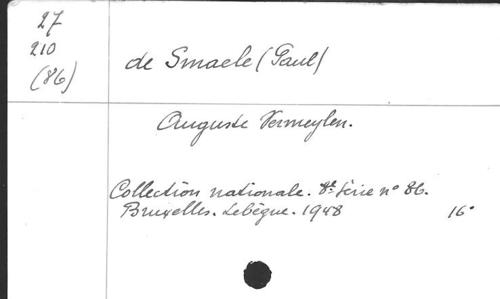 27
210
(86)
de Smaele (Paul)
Auguste Vermeylen.
Collection nationale. 8e Série n° 86.
Bruxelles. Lebègue. 1948 16°